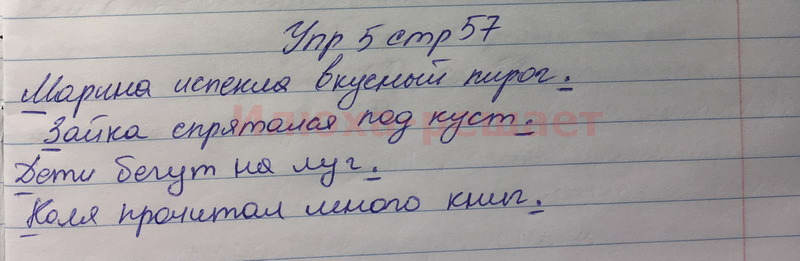 Упр 5 стр 57
Марина испекла вкусный пирог.
Зайка спрятался под куст.
Илюха решает
Дети бегут на луг.
Коля прочитал много книг.